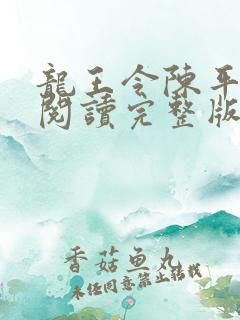 龍王令陳平
閱讀完整版
香菇鱼丸
未经同意禁止转载